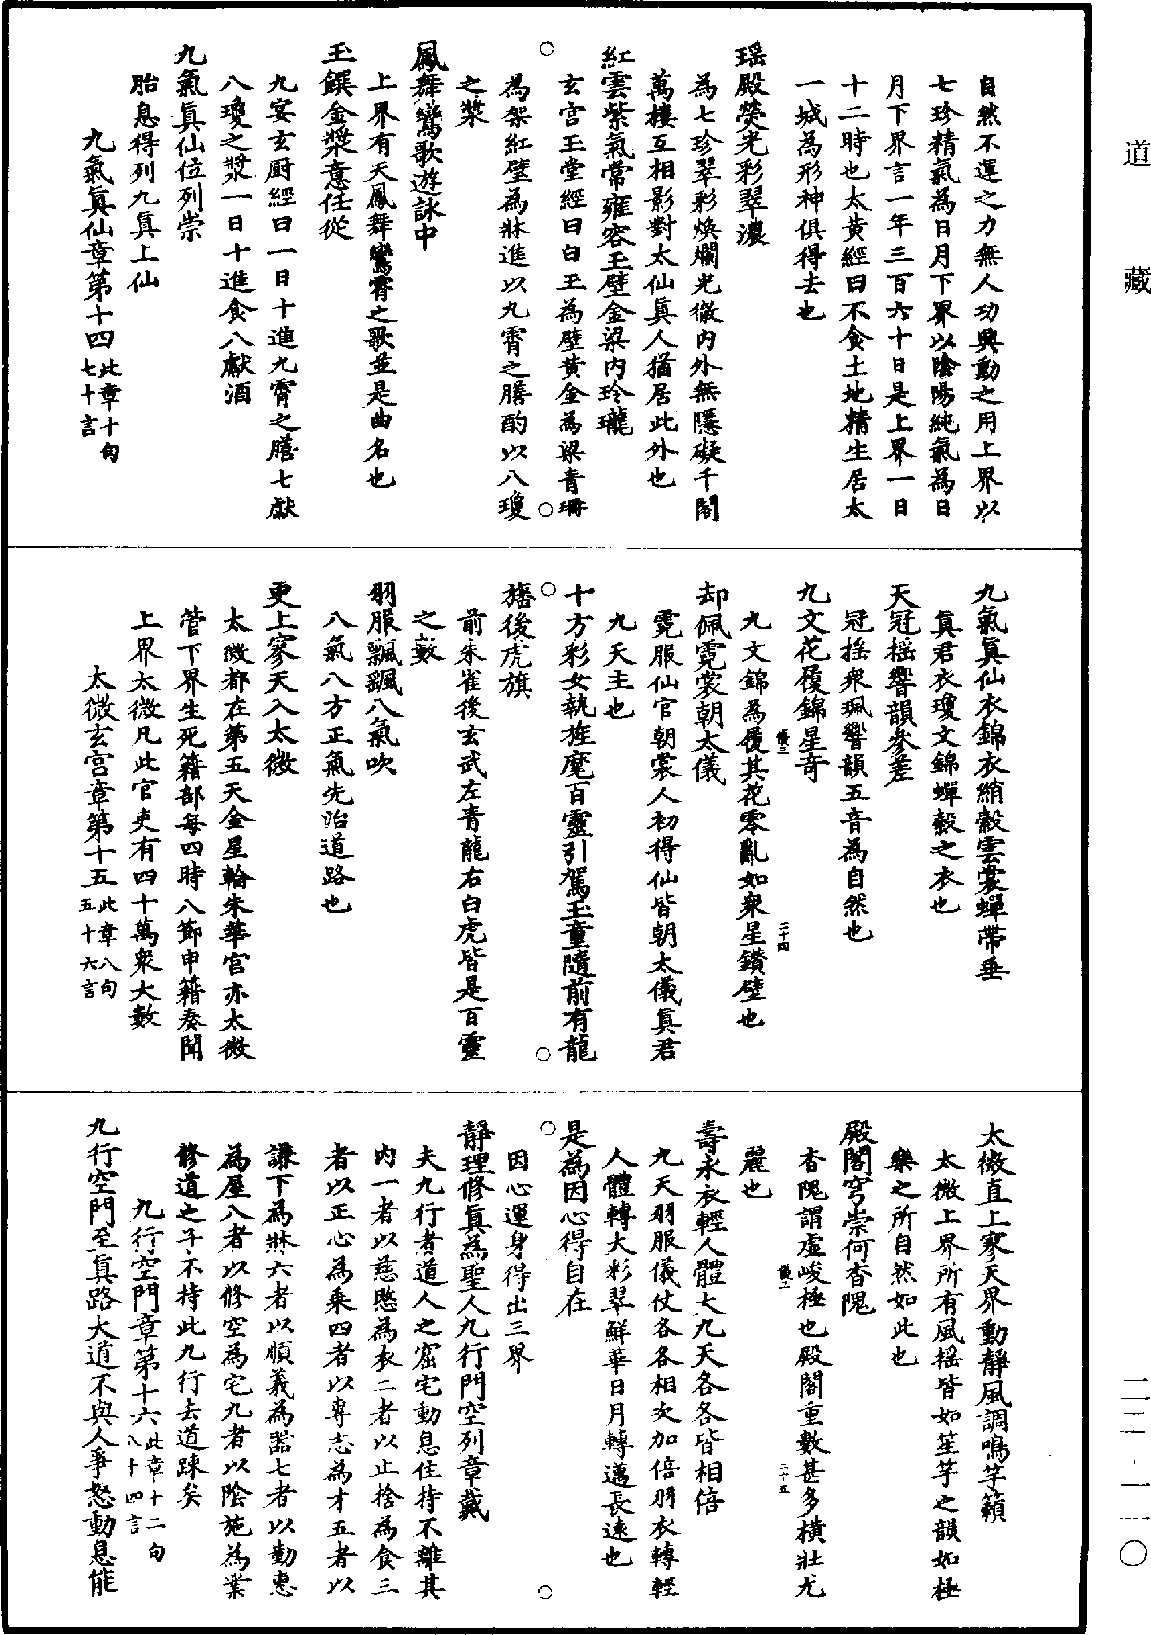 道藏
自然不運之力無人功與動之用上界以
七珍精氣為日月下界以陰陽純氣為日
月下界言一年三百六十日是上界一日
十二時也太黃經曰不食土地精生居太
一城為形神俱得去也
瑶殿熒光彩翠濃
為七珍翠彩煥爛光徹内外無隱礙千閣
萬樓互相影對太仙真人猶居此外也
紅雲紫氣常雍容玉壁金梁内玲瓏
玄宫玉堂經曰白玉為壁黃金為梁青珊
為架紅璧為牀進以九霄之膳酌以八瓊
之漿
鳳舞鸞歌遊詠中
上界有天鳳舞鸞霄之歌並是曲名也
玉饌金漿意任從
九宴玄厨經曰一日十進九霄之膳七獻
八瓊之漿一日十進食八獻酒
九氣真仙位列崇
胎息得列九真上仙
九氣真仙章第十四此章十句七十言
九氣真仙衣錦衣綃縠雲裳蟬帶垂
真君衣瓊文錦蟬縠之衣也
天冠揺響韻參差
冠揺衆珮響韻五音為自然也
九文花履錦星奇
九文錦為履其花零亂如衆星鑽壁也
二十四
却佩霓裳朝太儀
霓服仙官朝裳人初得仙皆朝太儀真君
九天主也
十方彩女執旌麾百靈引駕玉童隨前有龍
旛後虎旗
前朱雀後玄武左青龍右白虎皆是百靈
之數
羽服飄飄八氣吹
八氣八方正氣先治道路也
更上寥天入太微
太微都在第五天金星輪朱華官亦太微
管下界生死籍部每四時八節申籍奏聞
上界太微凡此官吏有四十萬衆大數
太微玄宫章第十五此章八句五十六言
太微直上寥天界動静風調鳴竽籟
太微上界所有風揺皆如笙竽之韻如極
樂之所自然如此也
殿閣穹崇何杳隗
杳隗謂虚峻極也殿閣重數甚多横壯尤
二十五
麗也
壽永衣輕人體大九天各各皆相倍
九天羽服儀仗各各相次加倍羽衣轉輕
人體轉大彩翠鮮華日月轉邁長遠也
是為因心得自在
因心運身得出三界
静理修真為聖人九行門空列章戴
夫九行者道人之窟宅動息住持不離其
内一者以慈愍為衣二者以止捨為食三
者以正心為乘四者以專志為才五者以
謙下為牀六者以順義為器七者以勤惠
為屋八者以修空為宅九者以陰施為業
修道之子不持此九行去道踈矣
九行空門章第十六此章十二句八十四言
九行空門至真路大道不與人争怒動息能
二三-二一〇